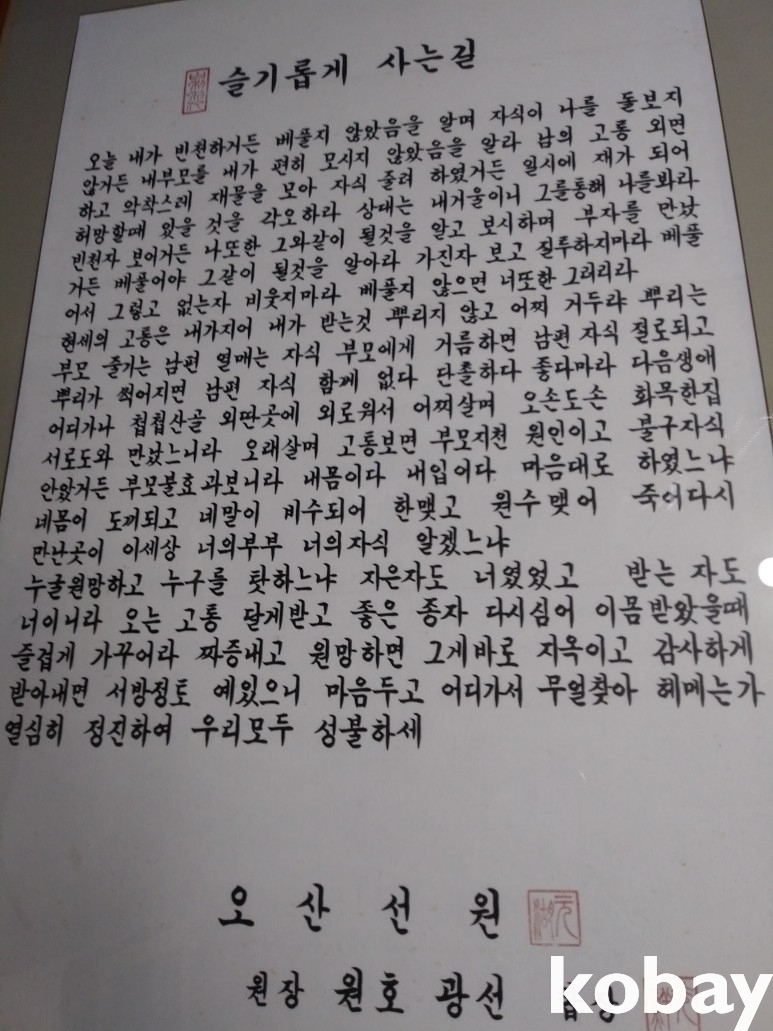 슬기롭게 사는길
오늘 내가 빈천하거든 베풀지 않았음을 알며 자식이 나를 돌보지
않거든 내부모를 내가 편히 모시지 않았음을 알라 남의 고통 외면
하고 악착스레 재물을 모아 자식 줄려 하였거든 일시에 재가 되어
허망할때 왔을 것을 각오하라 상대는 내거울이니 그를통해 나를봐라
빈천자 보이거든 나또한 그와같이 될것을 알고 보시하며 부자를 만났
거든 베풀어야 그같이 될것을 알아라 가진자 보고 질투하지마라 베풀
어서 그렇고 없는자 비웃지마라 베풀지 않으면 너또한 그러리라
현세의 고통은 내가지어 내가 받는것 뿌리지 않고 어찌 거두랴 뿌리는
부모 줄기는 남편 열매는 자식 부모에게 거름하면 남편 자식 절로되고
뿌리가 썩어지면 남편 자식 함께 없다 단촐하다 좋다마라 다음생애
어디가나 첩첩산골 외딴곳에 외로워서 어찌살며 오손도손 화목한집
서로도와 만났느니라 오래살며 고통보면 부모지천 원인이고 불구자식
안왔거든 부모불효과보니라 내몸이다 내입이다 마음대로 하였느냐
네몸이 도끼되고 네말이 비수되어 한맺고 원수맺어 죽어다시
만난곳이 이세상 너의부부 너의자식 알겠느냐
누굴원망하고 누구를 탓하느냐 지은자도 너였었고 받는 자도
너이니라 오는 고통 달게받고 좋은 종자 다시심어 이몸받왔을때
즐겁게 가꾸어라 짜증내고 원망하면 그게바로 지옥이고 감사하게
받아내면 서방정토 예있으니 마음두고 어디가서 무얼찾아 헤메는가
열심히 정진하여 우리모두 성불하세
오산선원
원장 원호 광선
kobay